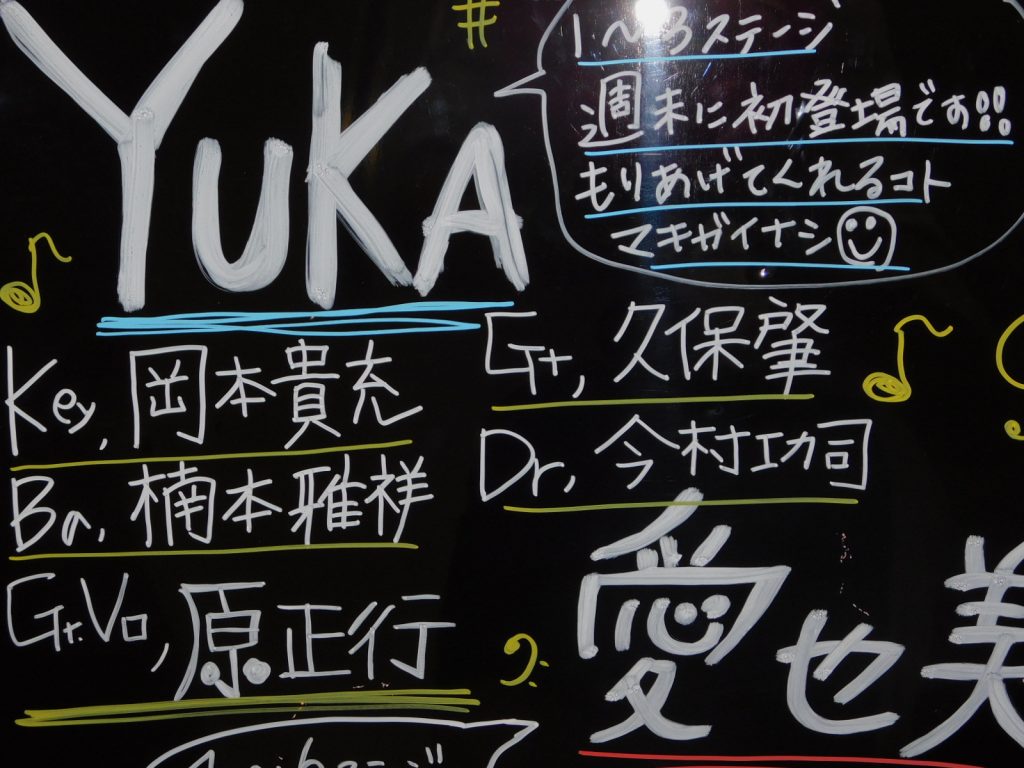 YUKA
1〜3ステージ
週末に初登場です!!
もりあげてくれるコト
マキガイナシ
Key, 岡本貴充
Gt, 久保肇
Ba, 楠本雅祥
Dr, 今村功司
Gr.Vo, 原正行
愛也美